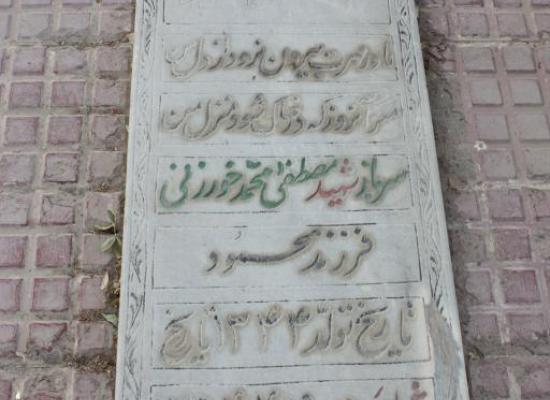 مادر مهرت بیرون نرود از دل من
مگر آنروز که در خاک شود منزل من
سرباز شهید مصطفی محمد خورزنی
فرزند محمود
تاریخ تولد ۱۳۴۴ تاریخ